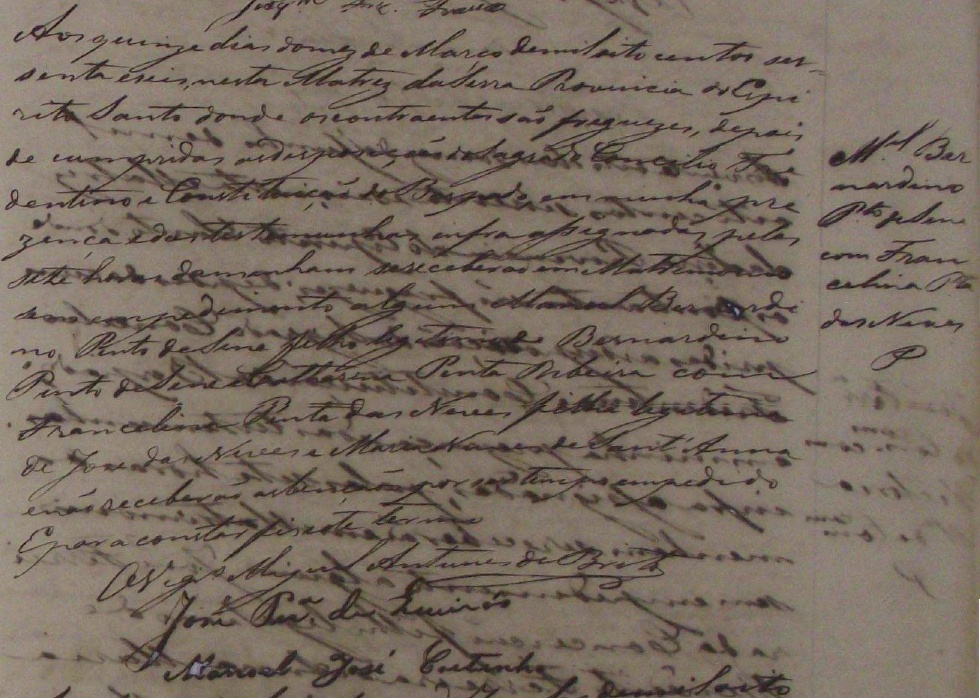 Aos quinze dias do mez de Março de mil oito centos ses-
senta e seis, nesta Matriz da Serra Provincia do Espi
rito Santo donde os contraentes são freguezes, depois
de cumpridas as desposições do Sagrado Concilio Tri
dentino e Constituição do Bispado em minha pre
zença e das testemunhas infra assignadas, pelas
sete horas da manham se receberão em Matrimonio
sem empedimento algum Manoel Bernardi
no Pinto de Sene filho legitimo de Bernardino
Pinto de Sene e Pinta Ribeira com
Francelina Pinta das Neves filha legitima
de Jose das Neves e Maria Nunes de Sant'Anna
e não receberão as benções por ser tempo empedido
E para constar fiz este termo
O Vigr.o Miguel Antunes de Brito
José Per.a de Queirós
Manoel José Coutinho
de mil oito
M.el Ber
nardino
P.to de Sene
com Fran
celina P.ta
das Neves
P